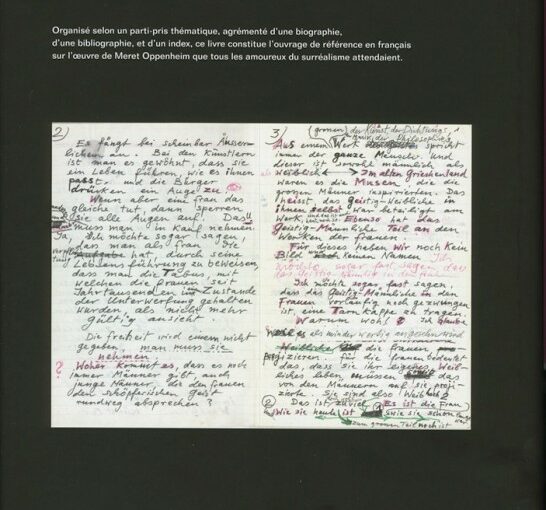 Organisé selon un parti-pris thématique, agrémenté d'une biographie,
d'une bibliographie, et d'un index, ce livre constitue l'ouvrage de référence en français
sur l'œuvre de Meret Oppenheim que tous les amoureux du surréalisme attendaient.
2)
Es fängt bei scheinbar Äusser-
lichem an. Bei den Künstlern
ist man es gewöhnt, dass sie
ein Leben führen, wie es ihnen
passt. und die Bürger
drücken ein Auge zu
Wenn aber eine Frau das
gleiche tut, dann sperren
sie alle Augen auf. Das
muss man in Kauf nehmen.
Ja, ich möchte sogar sagen,
dass man als Frau die
hat, durch seine
Lebensführung zu beweisen,
dass man die Tabus, mit
welchen die Frauen seit
Jahrtausenden im Zustande
der Unterwerfung gehalten
wurden, als nicht mehr
gültig ansieht.
Die Freiheit wird einem nicht
gegeben, man muss sie
nehmen.
? Woher kommt es, dass es noch
immer Männer gibt, auch
junge Männer, die den Frauen
den schöpferischen Geist
rundweg absprechen?
3)
(grossen) der Kunst, der Dichtung,
der Philosophie
Aus einem Werk spricht
immer der ganze Mensch. und
dieser ist sowohl männlich als
weiblich Im alten Griechenland
waren es die Musen, die die
grossen Männer inspirierten. Das
heisst, das Geistig-Weibliche in
ihnen selbst war beteiligt am
Werk, Ebenso hat das
Geistig-Männliche Teil an den
Werken der Frauen.
Für dieses haben wir noch kein
Bild noch keinen Namen
Ich möchte sogar fast sagen,
dass das Geistig-Männliche in den
Frauen vorläufig noch gezwungen
ist, eine Tarnkappe zu tragen.
Warum wohl? Ich glaube
als minderwertig angeschen wird
die Frauen
projizieren. Für die Frauen bedeutet
das, dass sie ihr eigenes Weib-
liches leben müssen das
von den Männern auf sie proji-
zierte. Sie sind also Weib hoch 2
Das ist zuviel. Es ist die Frau
wie sie heute ist wie sie schon
zum grossen Teil noch ist